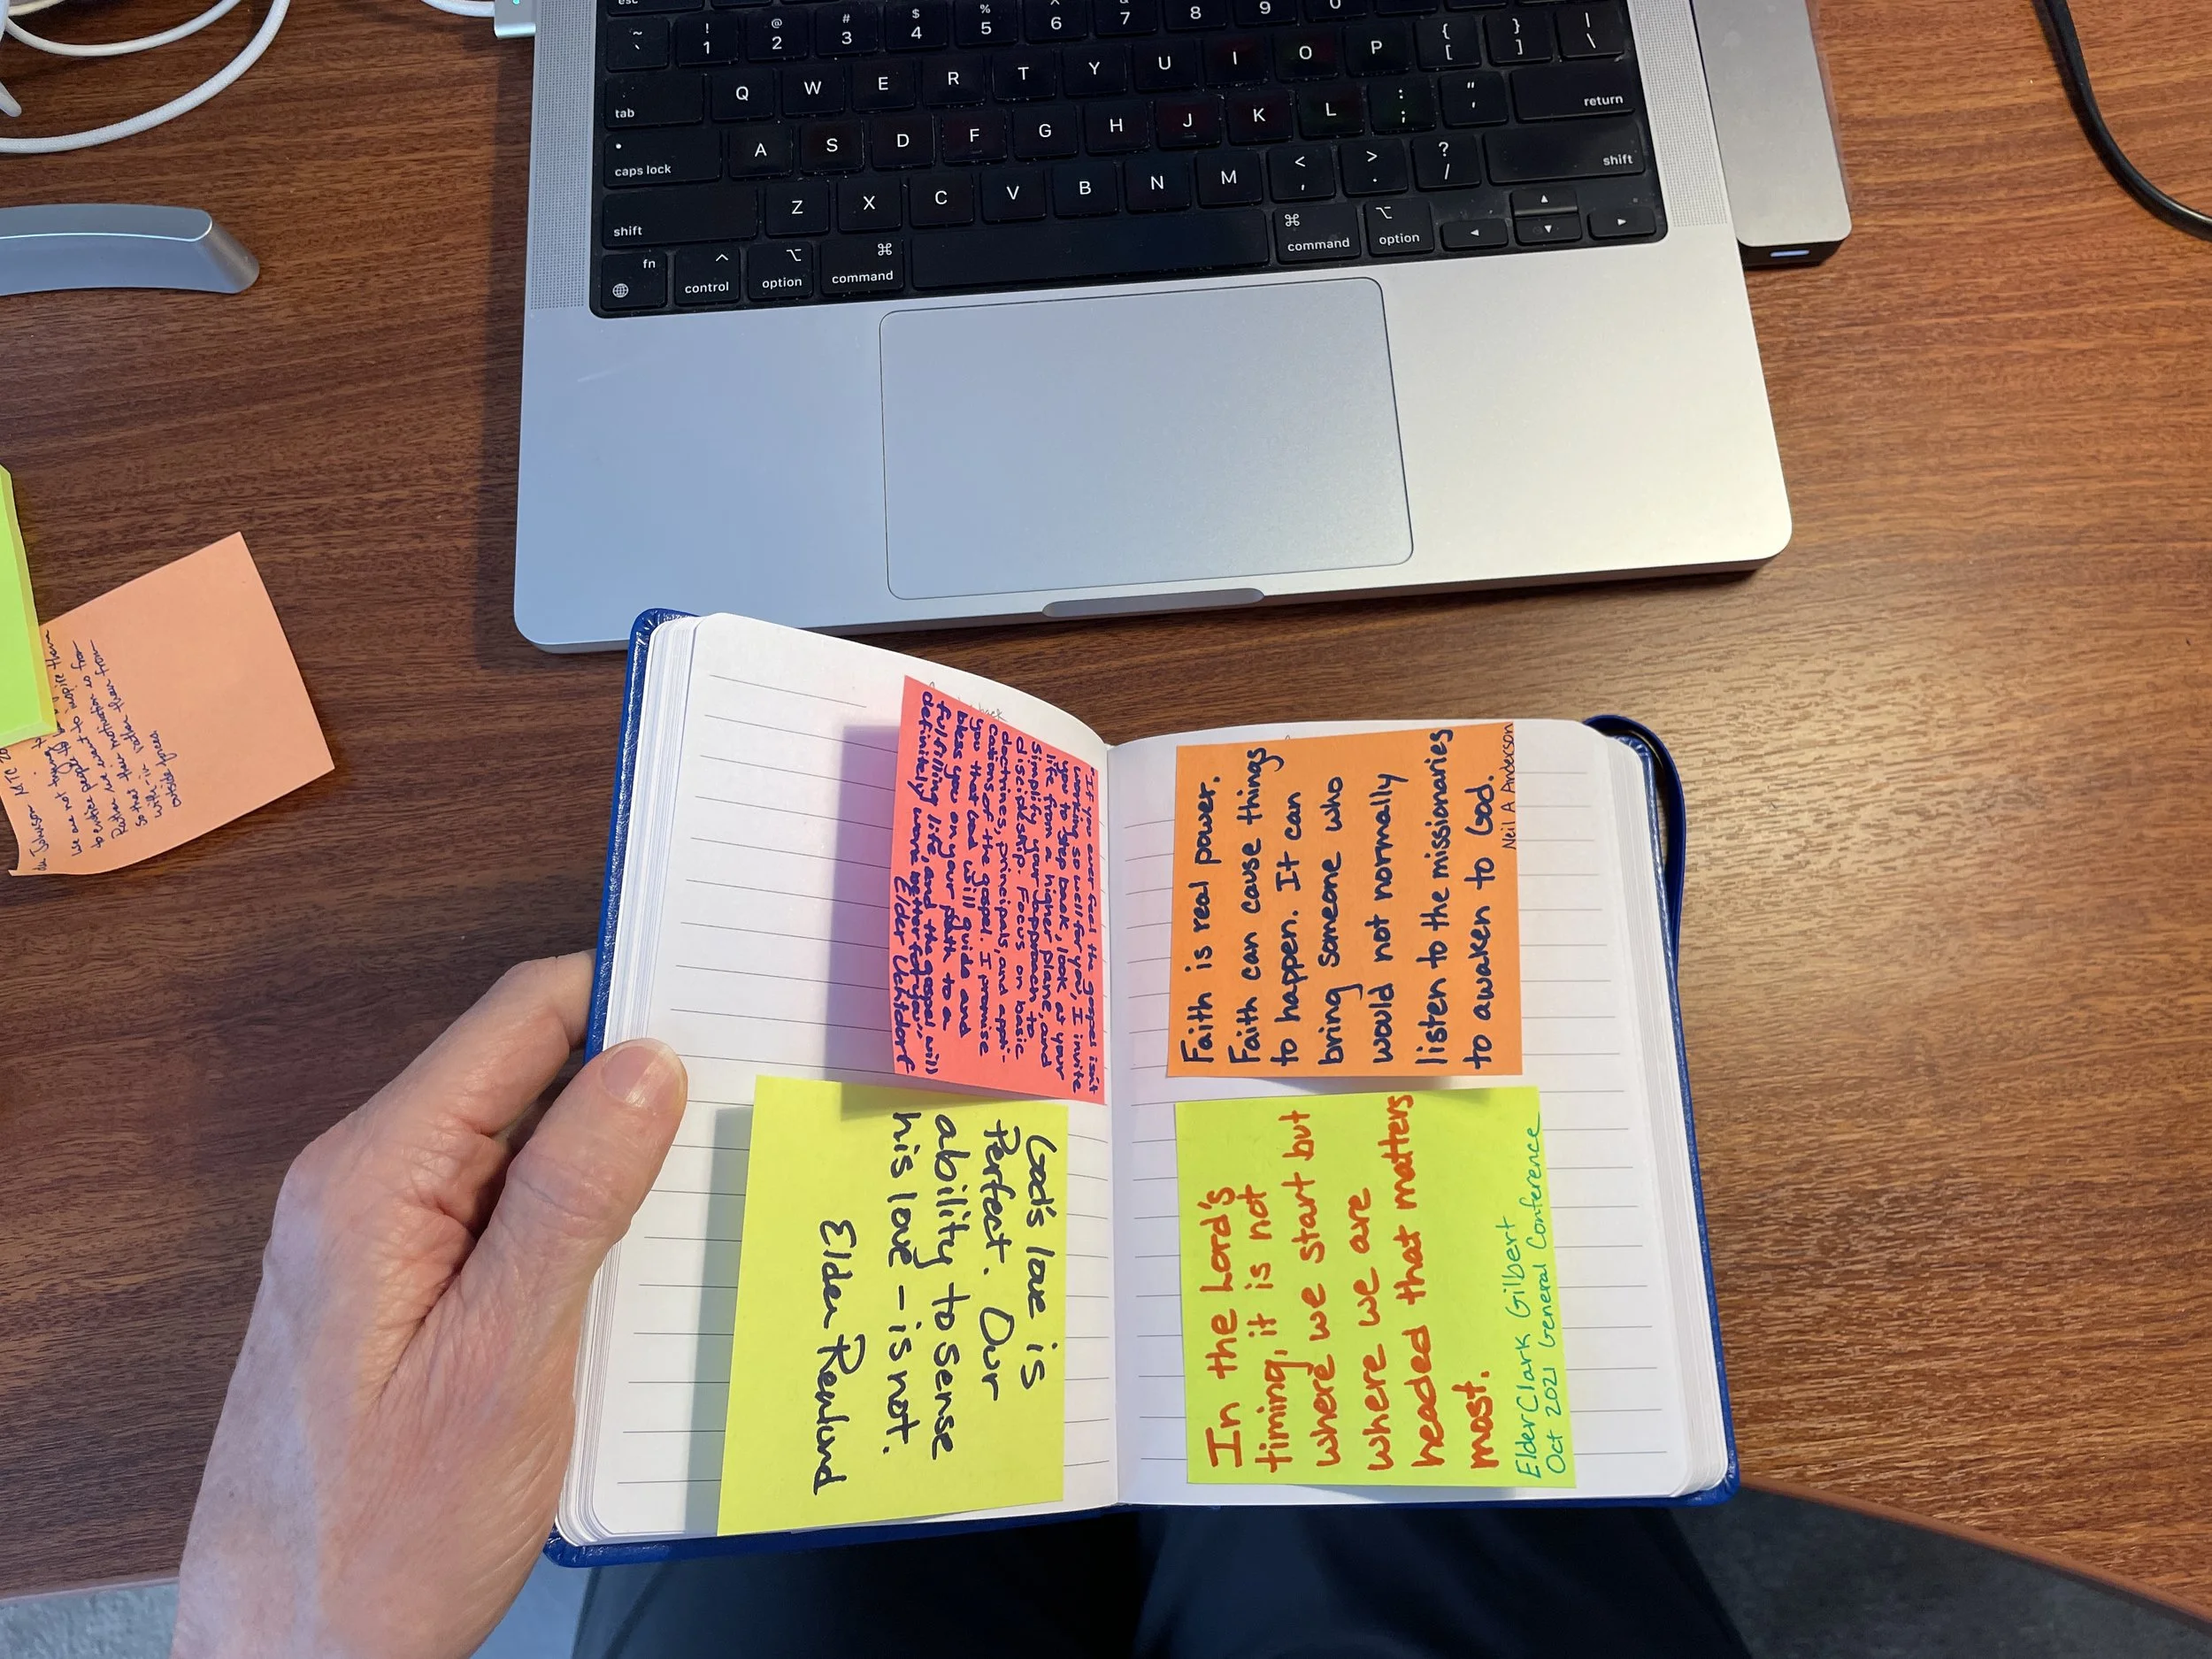 esc
~ `
! 1
@ 2
# 3
$ 4
% 5
^ 6
& 7
8
9
0
tab Q W E R T Y U I O P { [ } ] | \
caps lock A S D F G H J K L : ; " ' return
shift Z X C V B N M < , > . ? / shift
fn control option command command option
"If you ever feel the gospel isn't
working so well for you, I invite
you to step back, look at your
life from a higher plane, and
simplify your approach to
discipleship. Focus on basic
doctrines, principals, and appli-
cations of the gospel. I promise
you that God will guide and
bless you on your path to a
fulfilling life, and the gospel will
definitely work better for you."
Elder Uchtdorf
God's love is
Perfect. Our
ability to sense
his love - is not.
Elder Renlund
Faith is real power.
Faith can cause things
to happen. It can
bring someone who
would not normally
listen to the missionaries
to awaken to God.
Neil A Anderson
In the Lord's
timing, it is not
where we start but
where we are
headed that matters
most.
Elder Clark Gilbert
Oct 2021 General Conference
Johnson MTC
we are not trying
to entice people to
Rather we want to inspire them
so that their motivation is from
with-in rather then from
outside forces